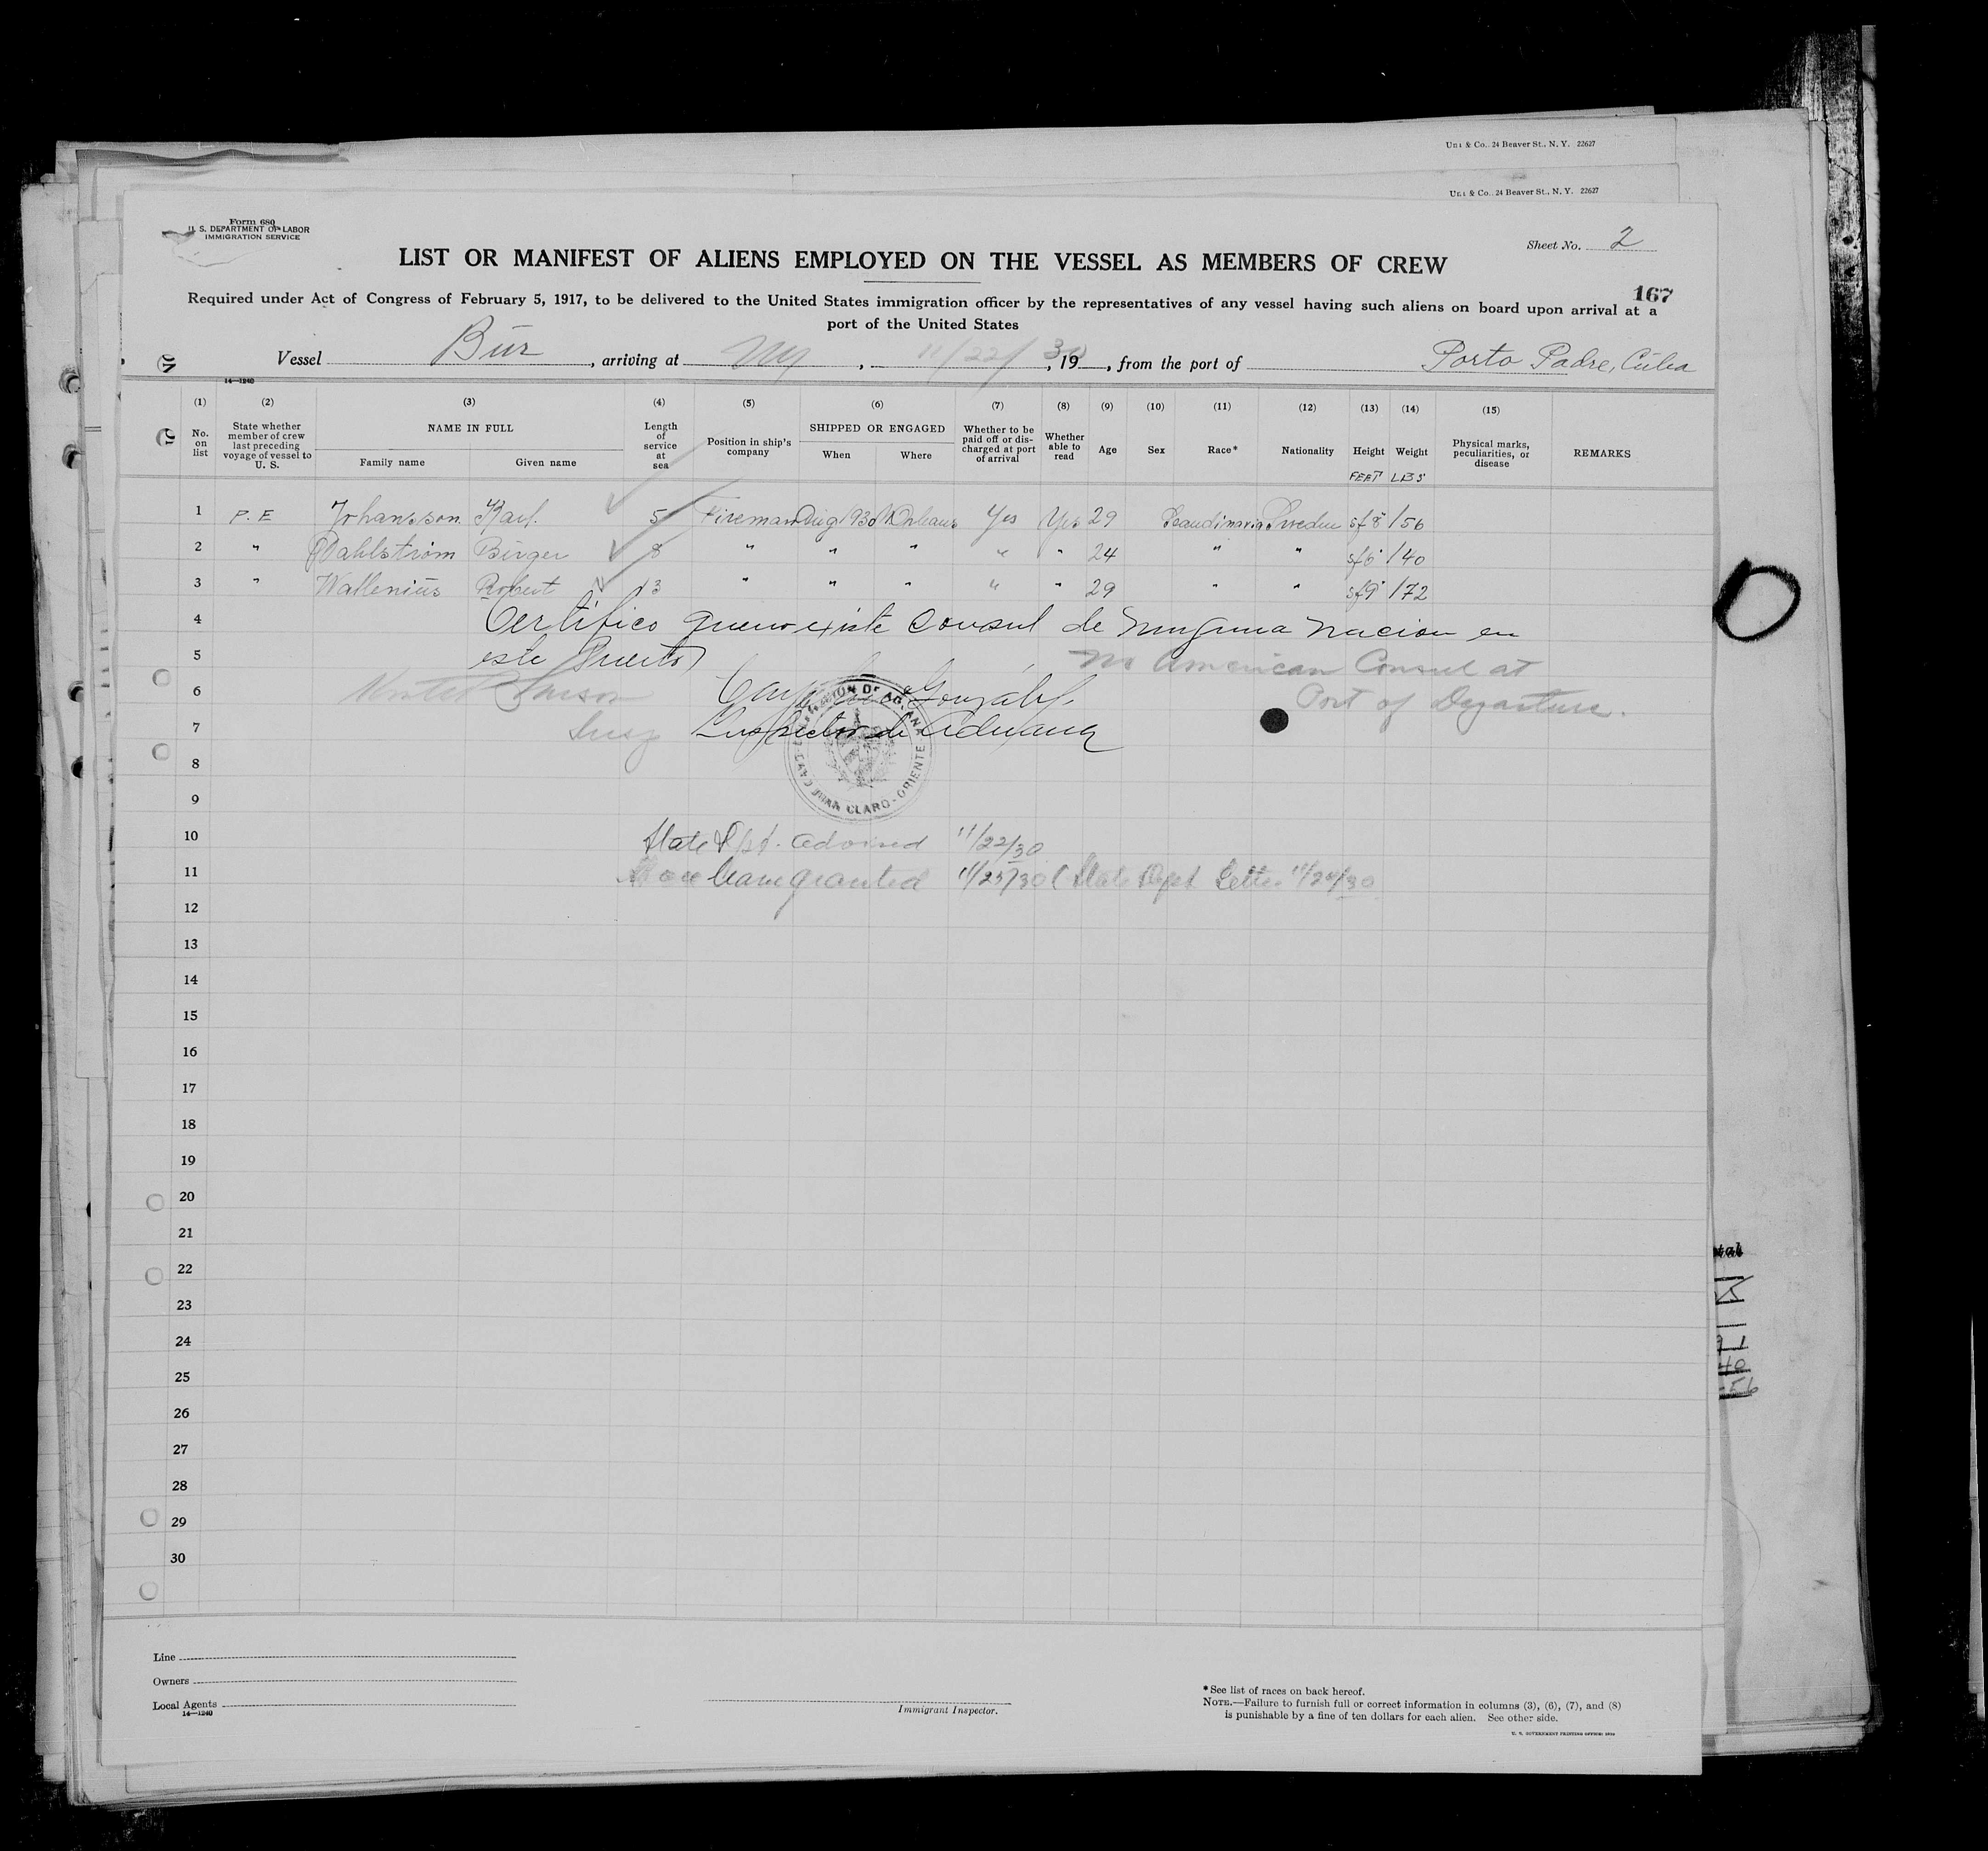 Uni & Co., 24 Beaver St., N. Y. 22627
Uni & Co., 24 Beaver St., N. Y. 22627
Form 680
U. S. DEPARTMENT OF LABOR
IMMIGRATION SERVICE
Sheet No. 2
LIST OR MANIFEST OF ALIENS EMPLOYED ON THE VESSEL AS MEMBERS OF CREW
167
Required under Act of Congress of February 5, 1917, to be delivered to the United States immigration officer by the representatives of any vessel having such aliens on board upon arrival at a
port of the United States
Vessel Bur, arriving at NY, 11/22/30, 19, from the port of Porto Padre, Cuba
14—1240
(1) No. on list
(2) State whether member of crew last preceding voyage of vessel to U. S.
(3) NAME IN FULL Family name Given name
(4) Length of service at sea
(5) Position in ship's company
(6) SHIPPED OR ENGAGED When Where
(7) Whether to be paid off or discharged at port of arrival
(8) Whether able to read
(9) Age
(10) Sex
(11) Race*
(12) Nationality
(13) Height FEET
(14) Weight LBS
(15) Physical marks, peculiarities, or disease
REMARKS
1 P. E Johansson Karl 5 Fireman Aug 1930 N Orleans Yes Yes 29 Scandinavia Sweden 5f8" 156
2 " Dahlström Birger 8 " " " " " 24 " " 5f6" 140
3 " Wallenius Robert 13 " " " " " 29 " " 5f9" 172
4 Certifico que no existe Consul de ninguna nacion en
5 este Puerto No American Consul at
6 Gonzalez Port of Departure.
7 Insp Inspector de Aduana
ORIENTE
8
9
10 State Dpt. advised 11/22/30
11 leave granted 11/25/30 (State Dept Letter 11/24/30
12
13
14
15
16
17
18
19
20
21
22
23
24
25
26
27
28
29
30
Line
Owners
Local Agents
14—1240
Immigrant Inspector.
*See list of races on back hereof.
NOTE.—Failure to furnish full or correct information in columns (3), (6), (7), and (8)
is punishable by a fine of ten dollars for each alien. See other side.